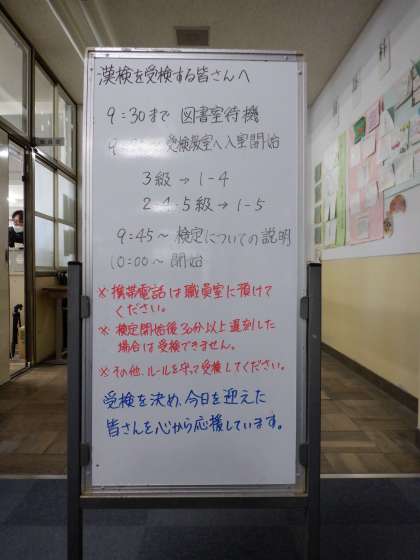 漢検を受検する皆さんへ
9:30まで 図書室待機
受検教室へ入室開始
3級→1-4
2・4・5級→1-5
9:45〜検定についての説明
10:00〜開始
※携帯電話は職員室に預けて
ください。
※検定開始後30分以上遅刻した
場合は受検できません。
※その他、ルールを守って受検してください。
受検を決め、今日を迎えた
皆さんを心から応援しています。